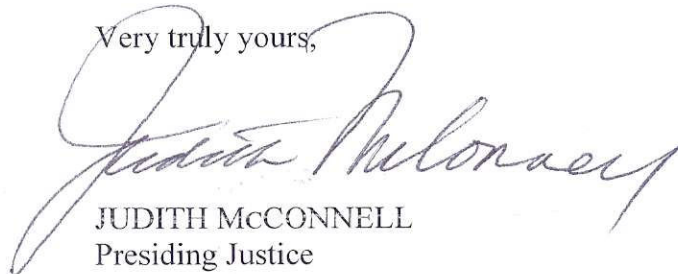 Very truly yours,
Judith McConnell
JUDITH McCONNELL
Presiding Justice